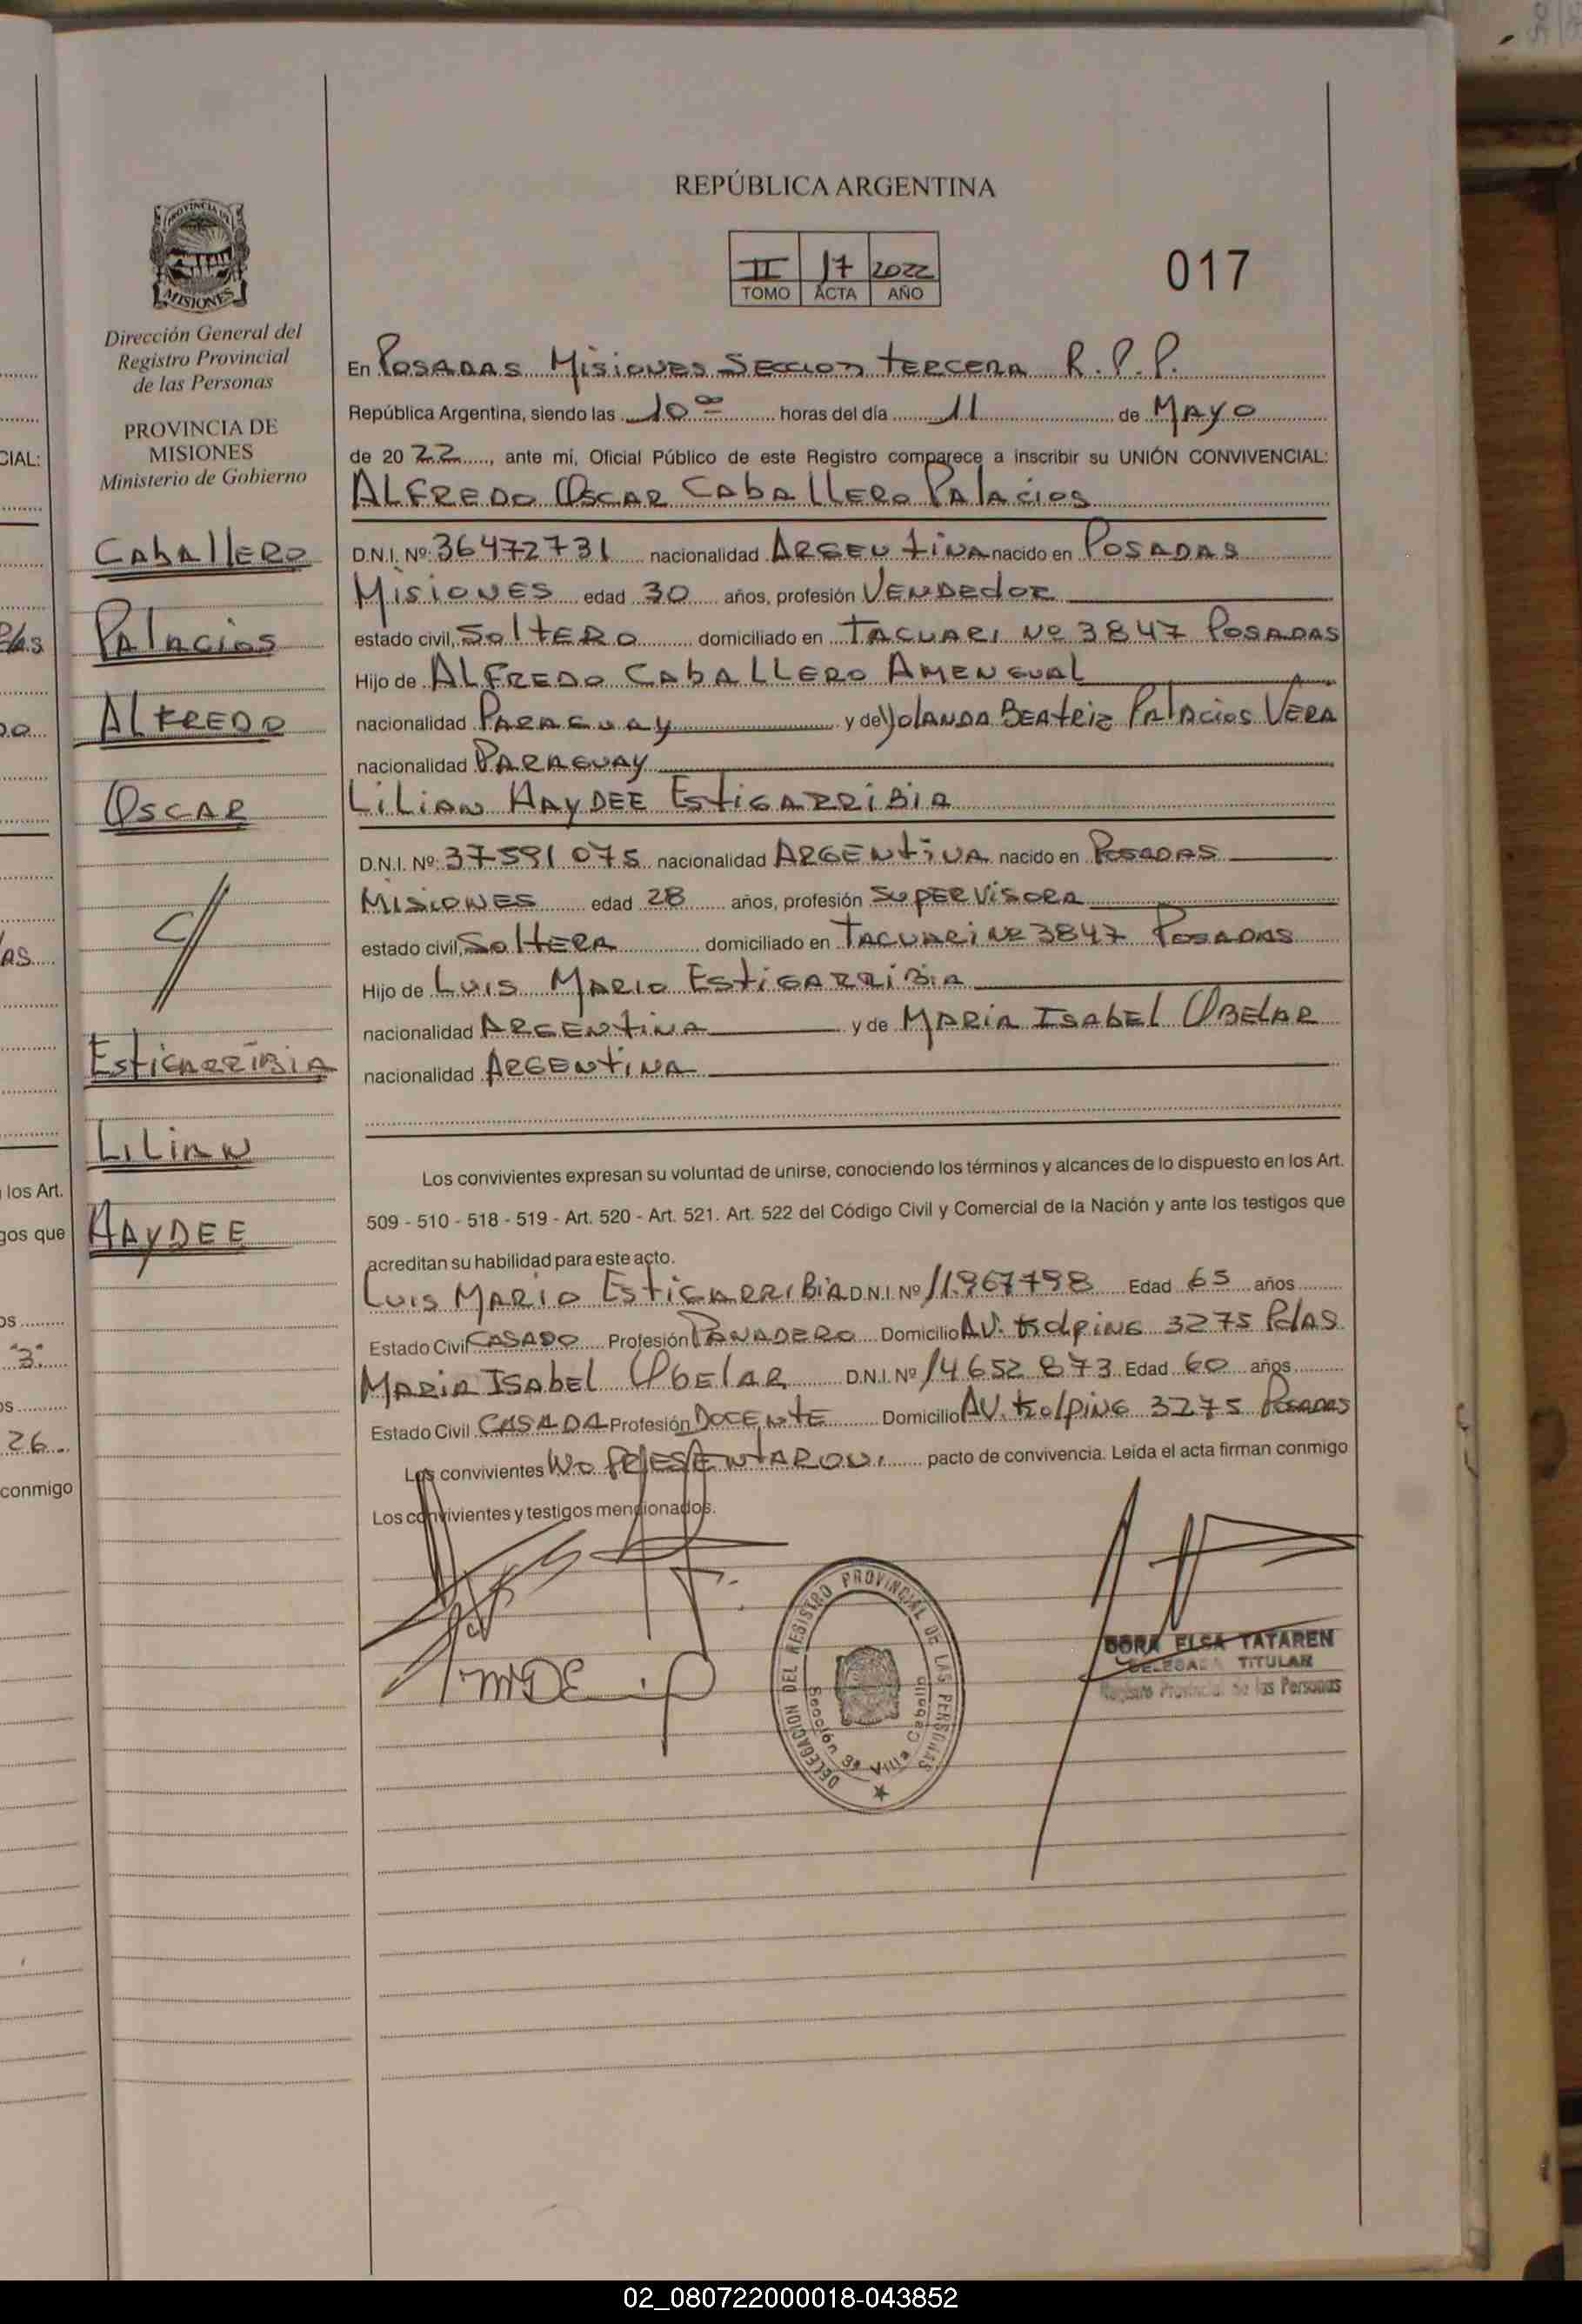 REPÚBLICA ARGENTINA
II 17 2022
TOMO ACTA AÑO
017
PROVINCIA DE
MISIONES
Dirección General del
Registro Provincial
de las Personas
PROVINCIA DE
MISIONES
Ministerio de Gobierno
CABALLERO
PALACIOS
ALFREDO
OSCAR
C/
ESTIGARRIBIA
LILIAN
HAYDEE
En POSADAS MISIONES SECCION TERCERA R.P.P.
República Argentina, siendo las 10 00 horas del día 11 de MAYO
de 20 22, ante mí, Oficial Público de este Registro comparece a inscribir su UNIÓN CONVIVENCIAL:
ALFREDO OSCAR CABALLERO PALACIOS
D.N.I. Nº: 36472731 nacionalidad ARGENTINA nacido en POSADAS
MISIONES edad 30 años, profesión VENDEDOR
estado civil, SOLTERO domiciliado en TACUARI Nº 3847 POSADAS
Hijo de ALFREDO CABALLERO AMENGUAL
nacionalidad PARAGUAY y de YOLANDA BEATRIZ PALACIOS VERA
nacionalidad PARAGUAY
LILIAN HAYDEE ESTIGARRIBIA
D.N.I. Nº: 37591075 nacionalidad ARGENTINA nacido en POSADAS
MISIONES edad 28 años, profesión SUPERVISORA
estado civil, SOLTERA domiciliado en TACUARI Nº 3847 POSADAS
Hijo de LUIS MARIO ESTIGARRIBIA
nacionalidad ARGENTINA y de MARIA ISABEL OBELAR
nacionalidad ARGENTINA
Los convivientes expresan su voluntad de unirse, conociendo los términos y alcances de lo dispuesto en los Art.
509 - 510 - 518 - 519 - Art. 520 - Art. 521. Art. 522 del Código Civil y Comercial de la Nación y ante los testigos que
acreditan su habilidad para este acto.
LUIS MARIO ESTIGARRIBIA D.N.I. Nº 11.967498 Edad 65 años
Estado Civil CASADO Profesión PANADERO Domicilio AV. Kolping 3275 Pdas
MARIA ISABEL OBELAR D.N.I. Nº 14652873 Edad 60 años
Estado Civil CASADA Profesión DOCENTE Domicilio AV. Kolping 3275 POSADAS
Los convivientes NO PRESENTARON. pacto de convivencia. Leida el acta firman conmigo
Los convivientes y testigos mencionados.
DELEGACION DEL REGISTRO PROVINCIAL DE LAS PERSONAS
Sección 3ª Villa Cabello
DORA ELSA TATAREN
DELEGADA TITULAR
Registro Provincial de las Personas
CIAL:
los Art.
gos que
26
conmigo
02_080722000018-043852